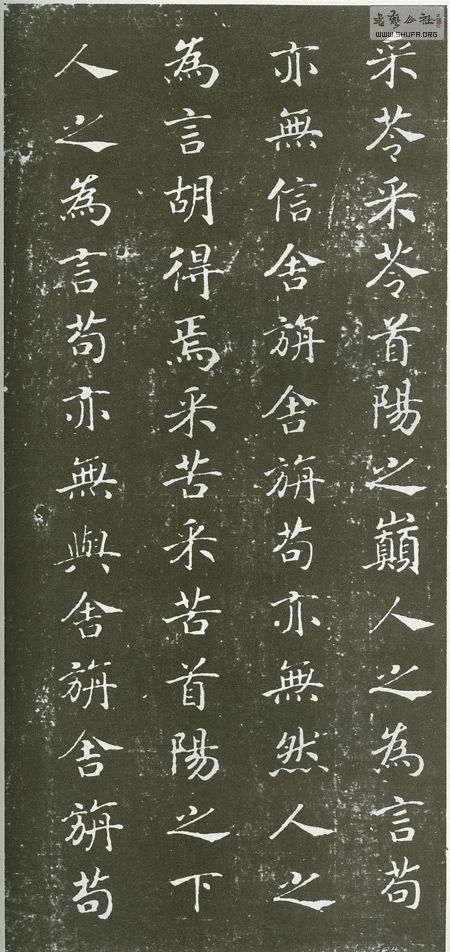 采苓采苓首陽之巔人之為言苟
亦無信舍旃舍旃苟亦無然人之
為言胡得焉采苦采苦首陽之下
人之為言苟亦無與舍旃舍旃苟
WWW.SHUFA.ORG